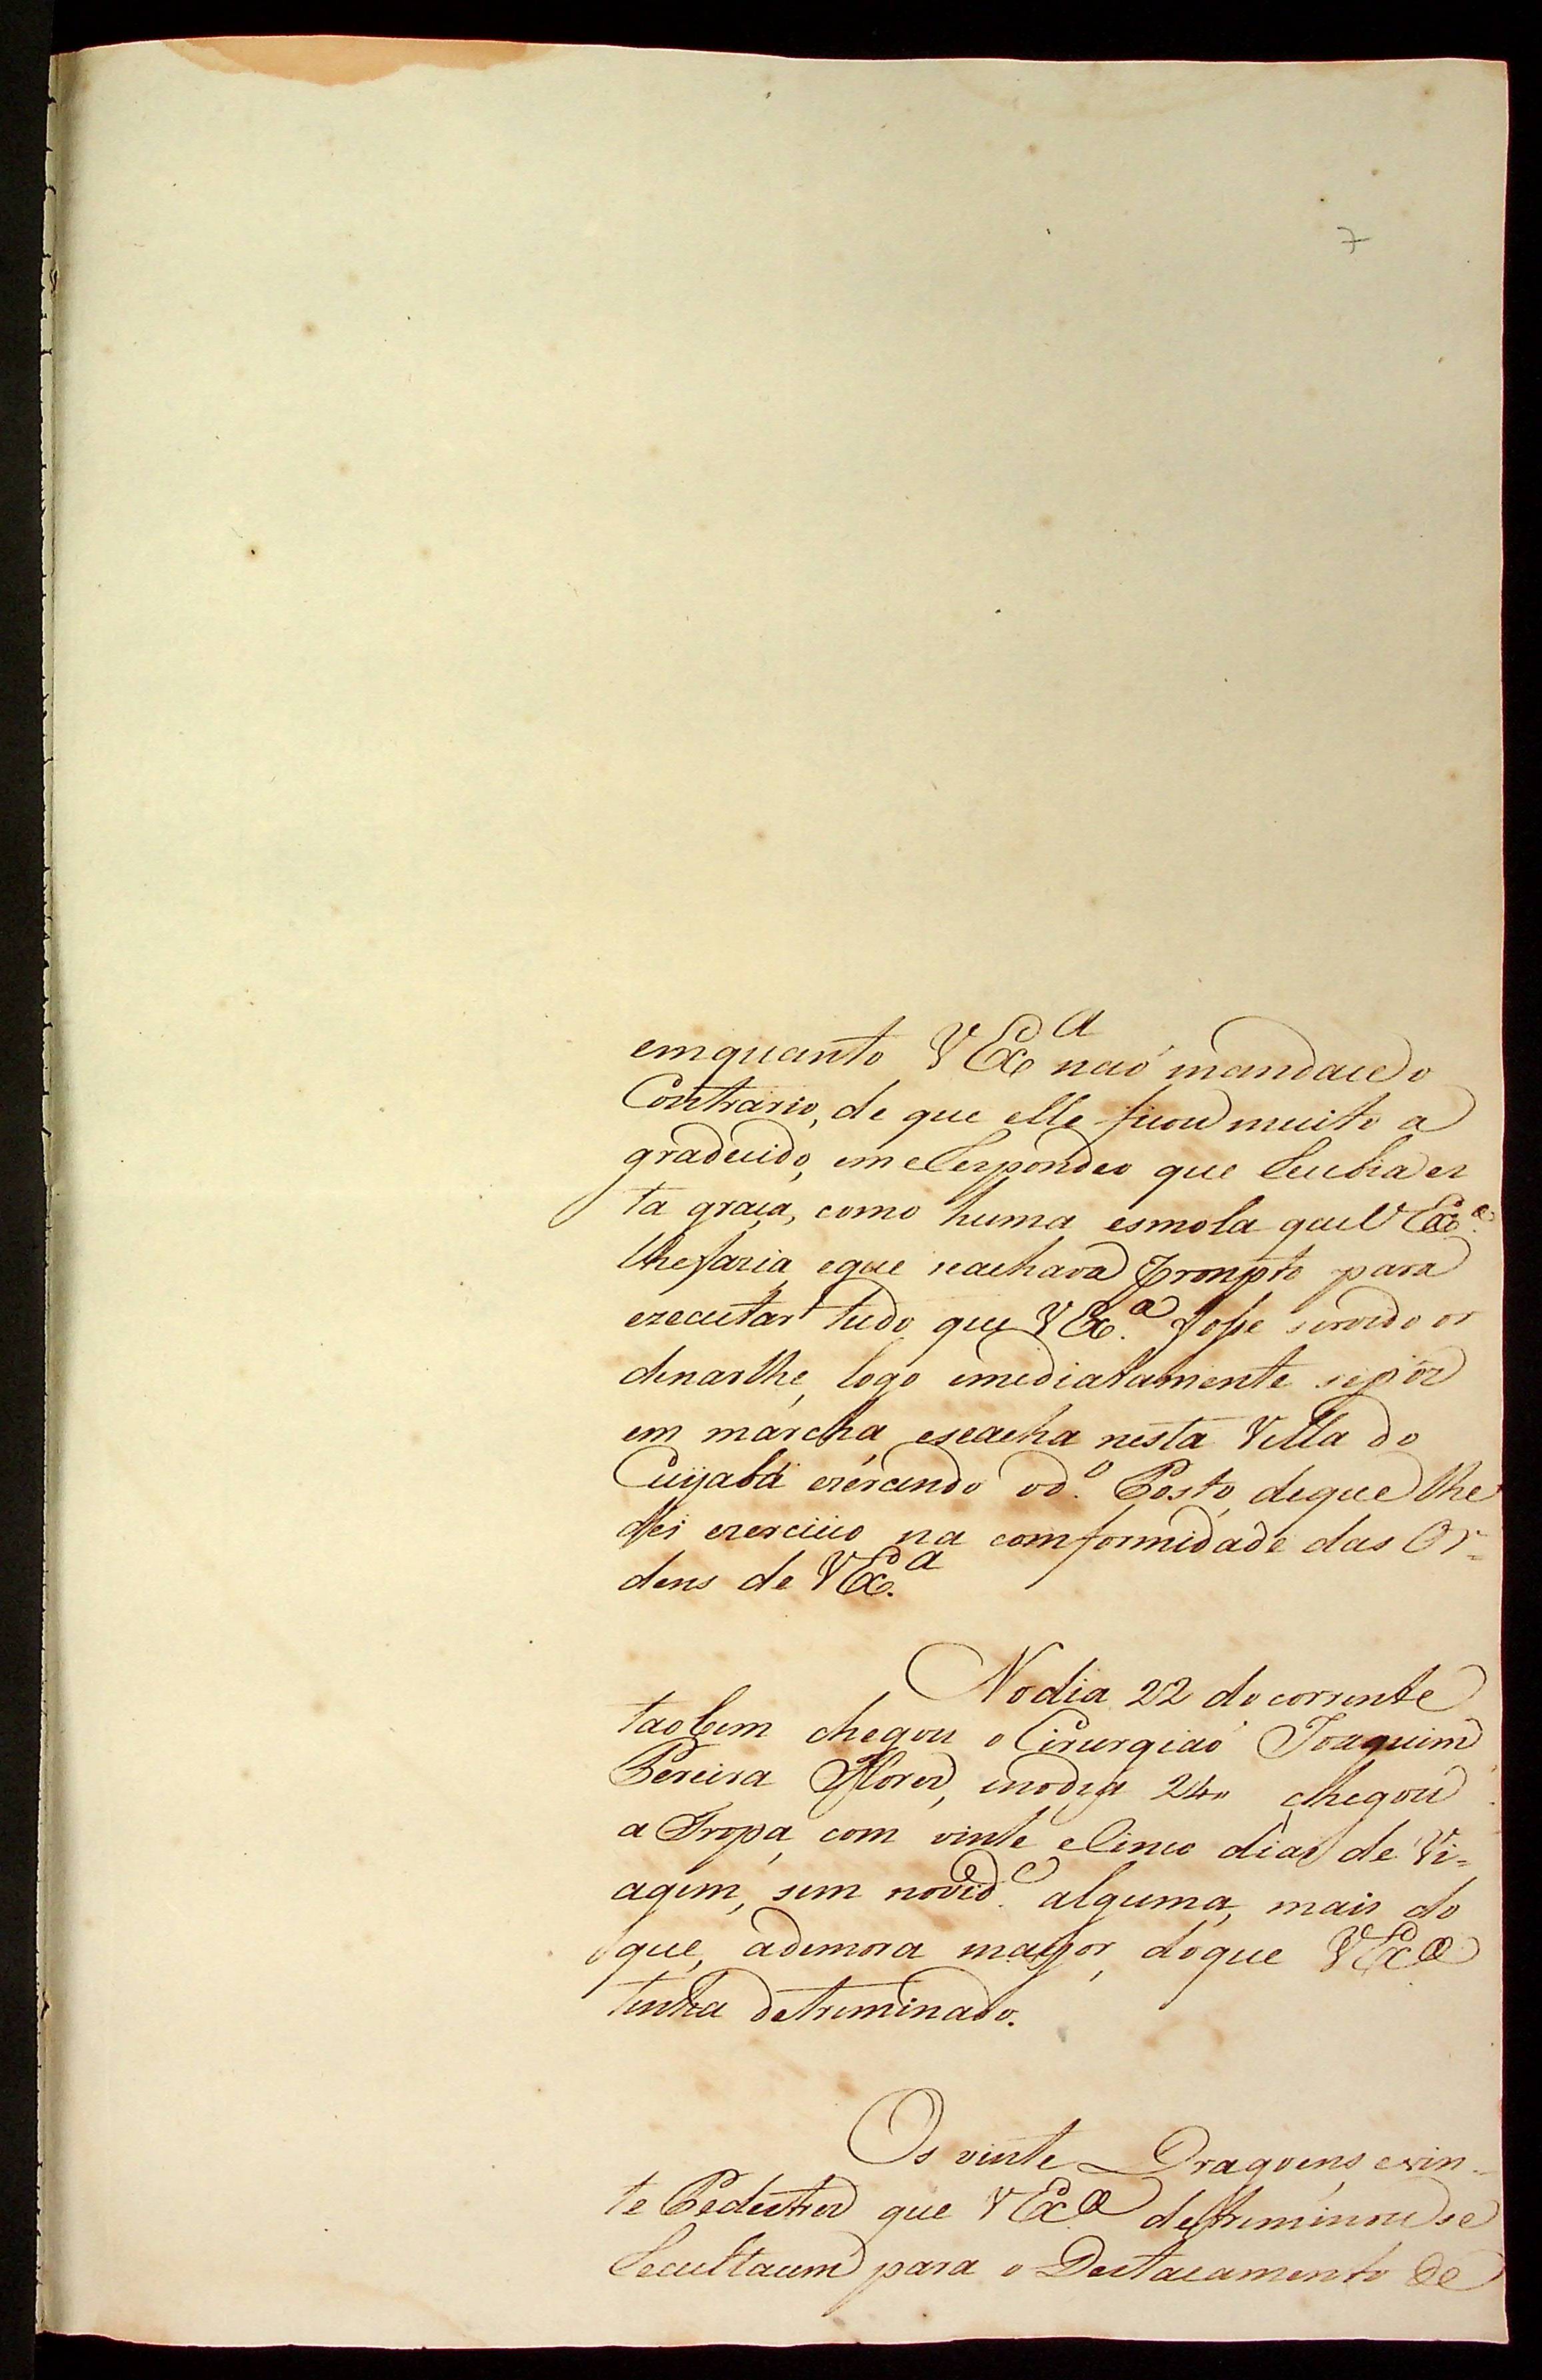 7
emquanto VExª naó mandace o
Contrario, de que elle ficou muito a
gradecido, eme Respondeo que Recebia es
ta graça, como huma esmola que VExª.
lhefazia, eque seachava Prompto para
ezecutar tudo que VExª. foße servido or
denarlhe, logo imediatamente sepôz
em márcha, eseacha nesta Villa do
Cuyabá exércendo od.º Posto, deque lhe
dei exercicio na comformidade das Or=
dens de VExª.
Nodia 22 do corrente
taobem chegou o Cirurgiaó Joaquim
Pereira Flores, enodia 24 chegou
a Tropa, com vinte e Cinco dias de Vi=
agem, sem novid.e alguma, mais do
que, ademora mayor, doque VExª
tinha detreminado.
Os vinte Dragoens, evin=
te Pedestres que VExª detreminou se
Recultacem para o Destacamento de